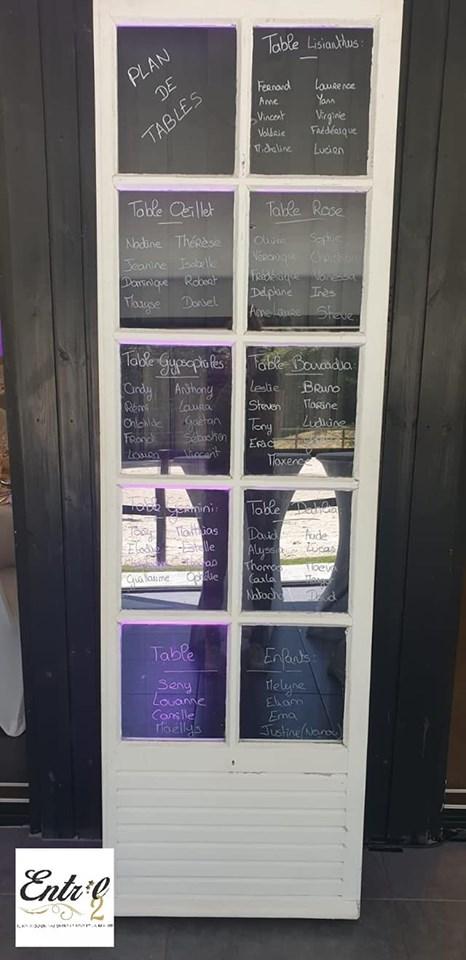 PLAN
DE
TABLES
Table Lisianthus:
Fernand Laurence
Anne Yann
Vincent Virginie
Valérie Frédérique
Micheline Lucien
Table Oeillet
Nadine Thérèse
Jeanine Isabelle
Dominique Robert
Maryse Daniel
Table Rose
Olivier Sophie
Véronique Christian
Frédérique Vanessa
Delphine Inès
Anne Laure Steve
Table Gypsophiles:
Cindy Anthony
Rémi Laura
Chlohilde Gaetan
Franck Sébastien
Lauren Vincent
Table Bouvardia:
Leslie Bruno
Steven Marine
Tony Ludivine
Eric
Maxence
Table Germini:
Tony Matthias
Elodie Estelle
Guillaume Ophélie
Table Dahlia
David Aude
Alyssia Lucas
Thomas Maeva
Carla
Natacha David
Table
Seny
Louanne
Camille
Maëllys
Enfants:
Melyne
Eliam
Ema
Justine (Nanou)
Entr'ℓ
2